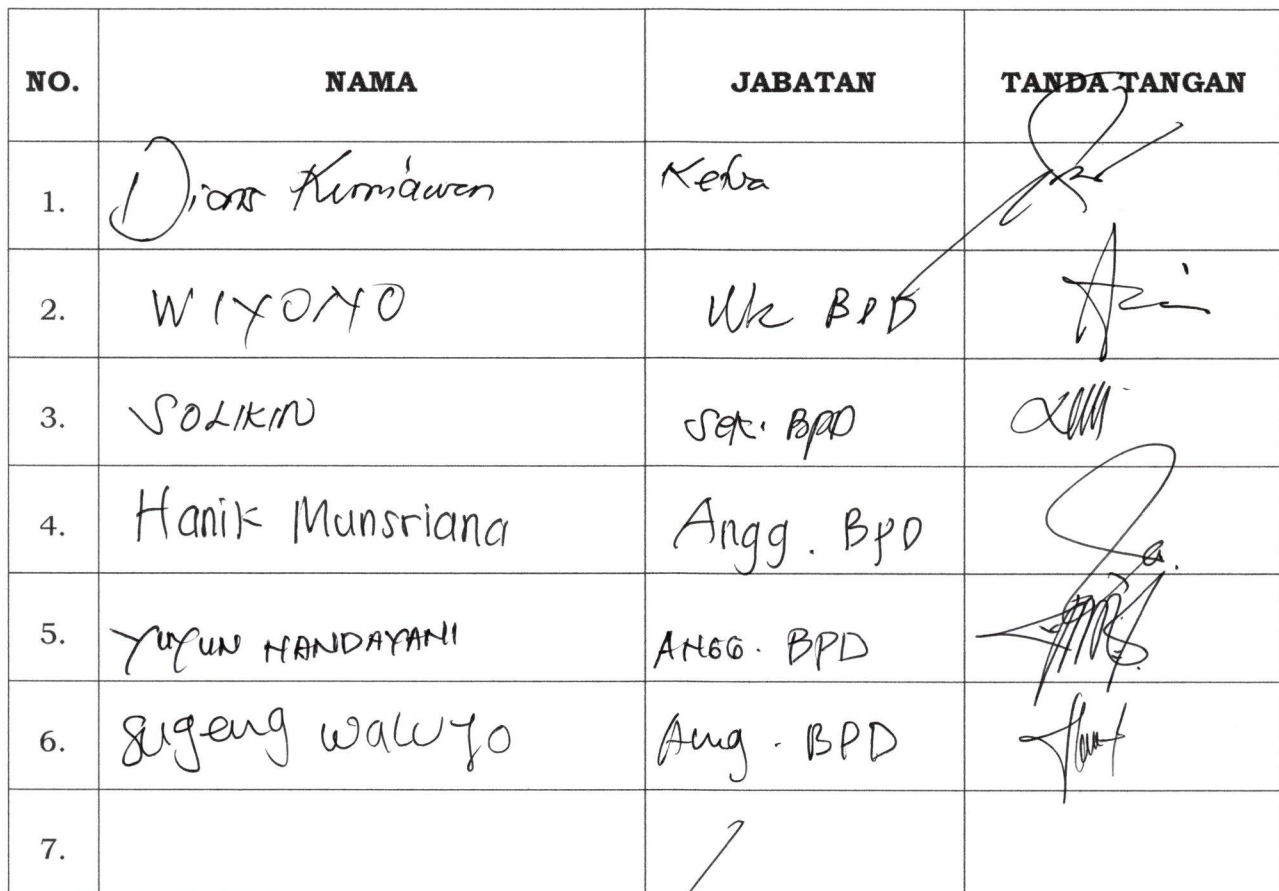 NO. NAMA JABATAN TANDA TANGAN
1. Kurniawan Ketua
2. WIYONO Wk BPD
3. SOLIKIN Sek. BPD
4. Hanik Munsriana Angg. BPD
5. YUYUN HANDAYANI ANGG. BPD
6. Sugeng Waluyo Ang. BPD
7.